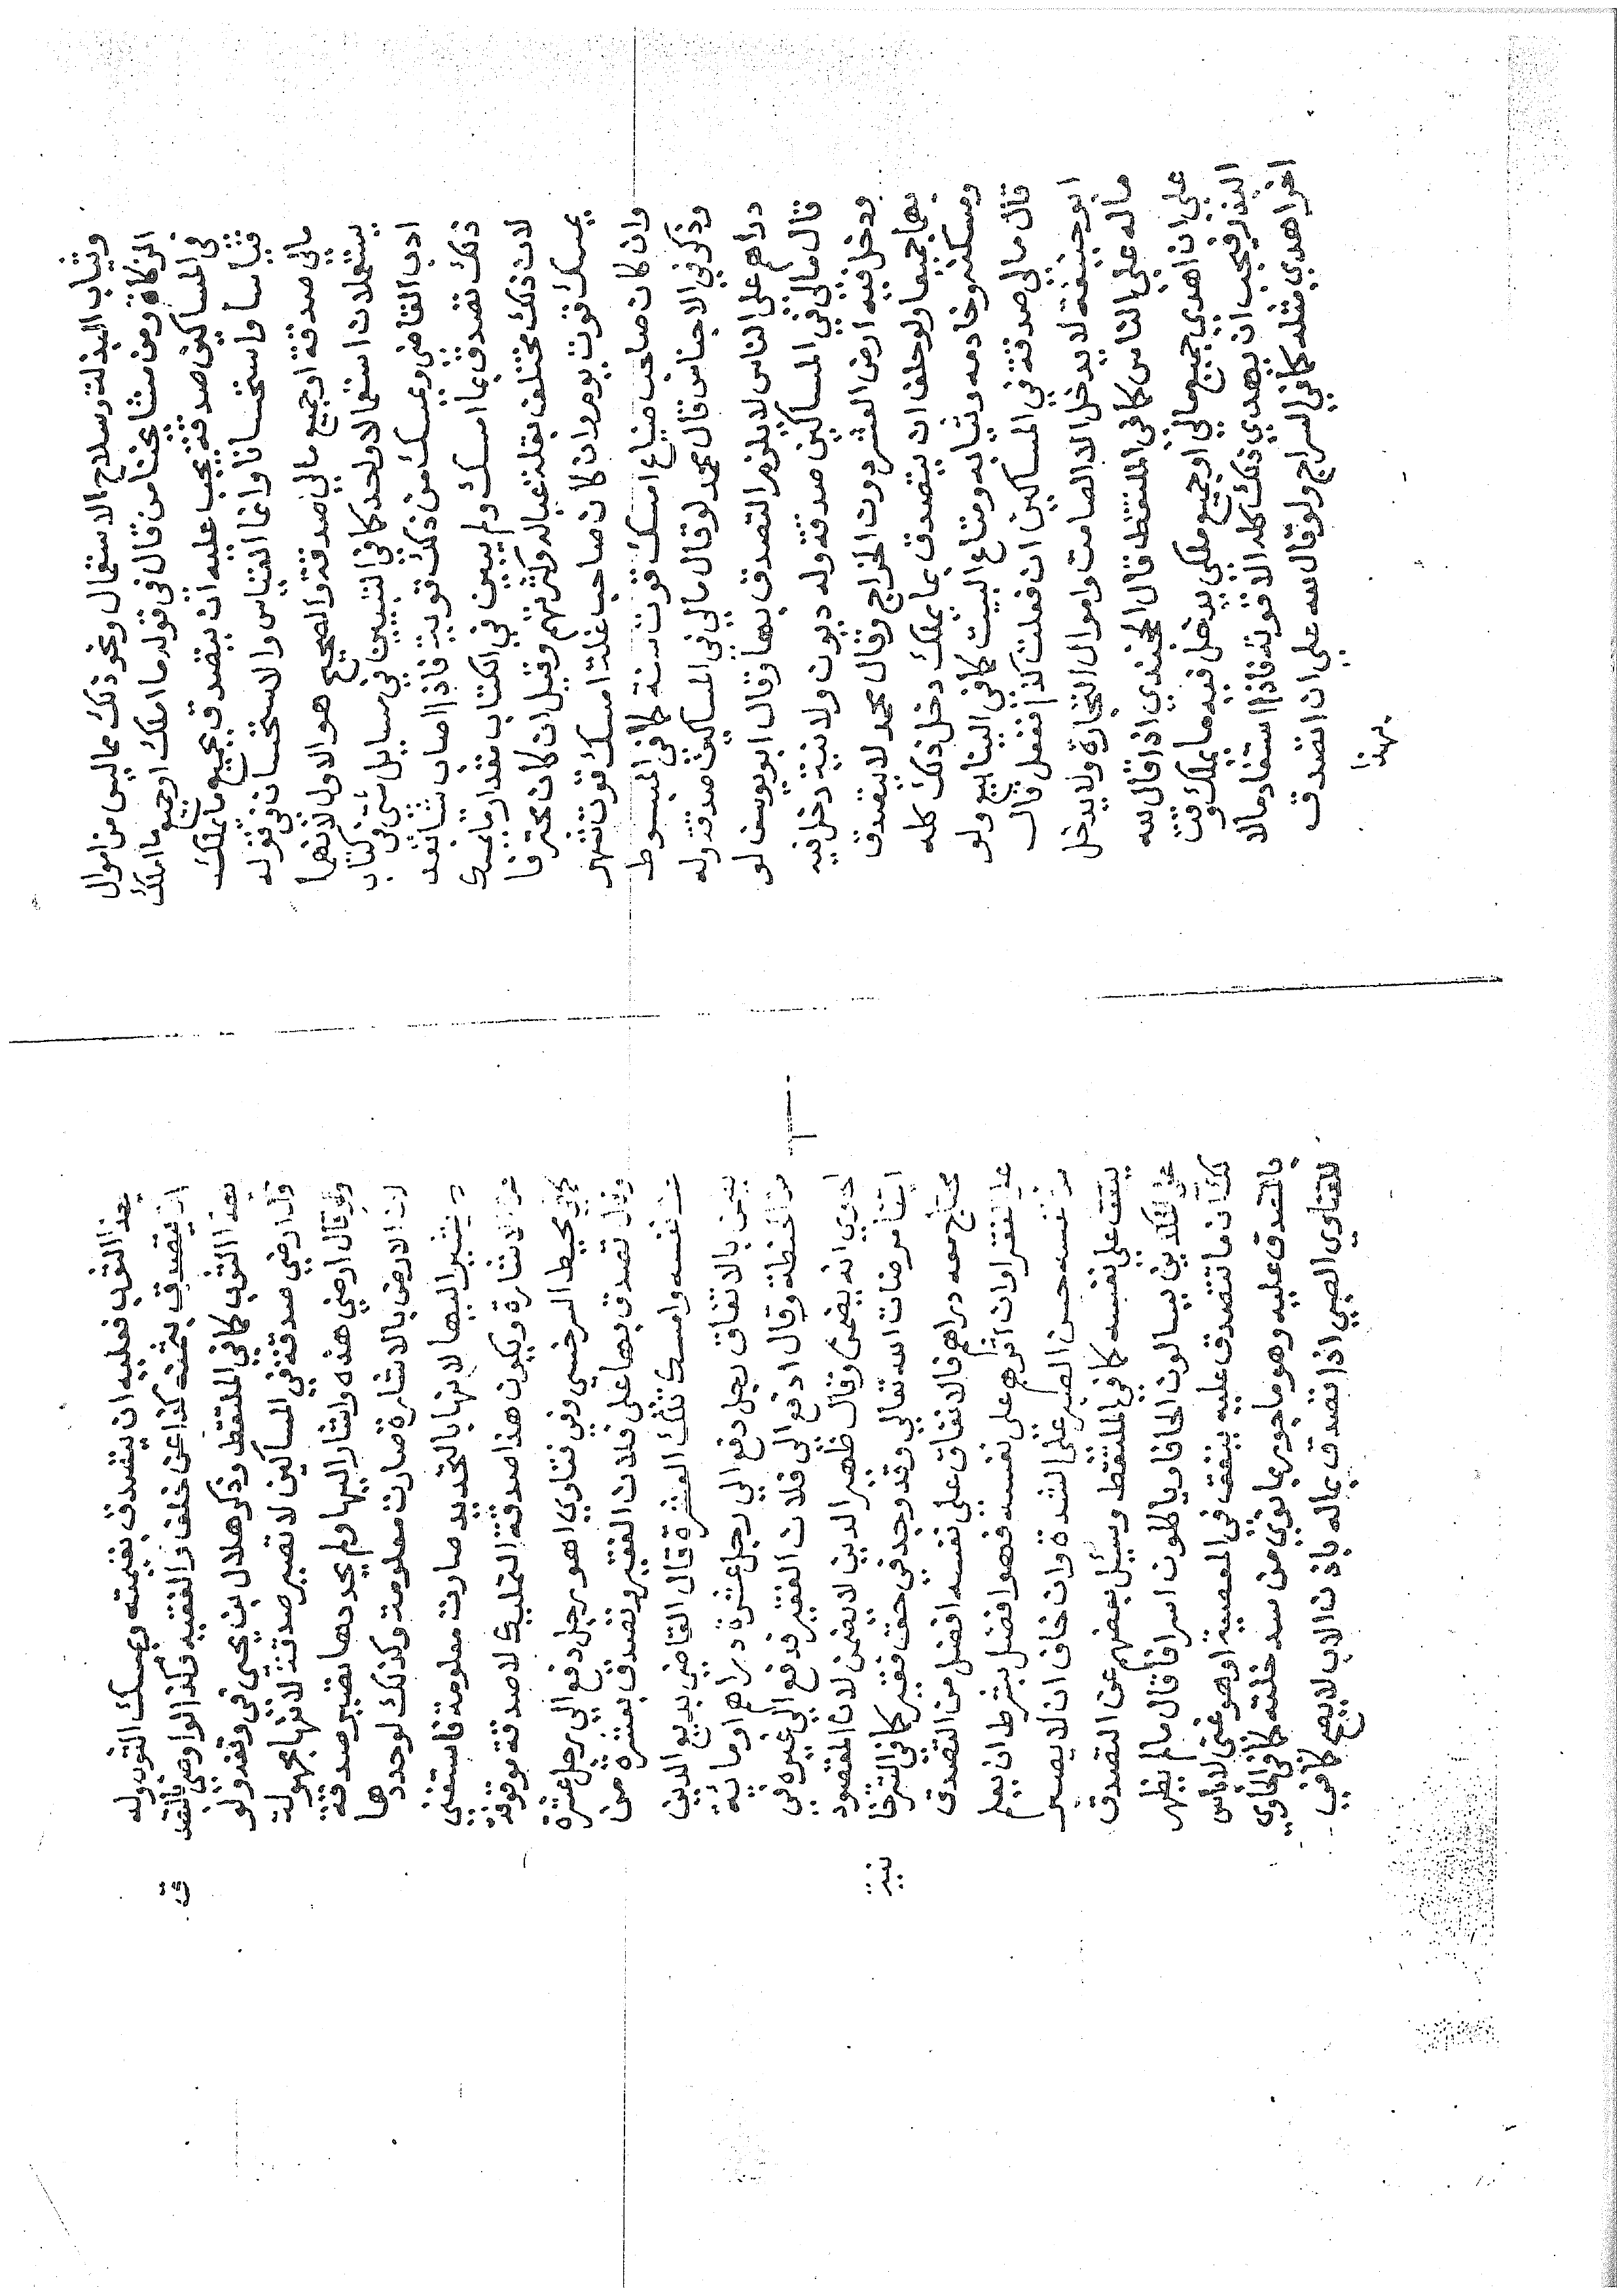 وثياب البذلة وسلاح الاستعمال ونحو ذلك مما ليس من اموال
الزكاة ومن مشايخنا من قال في قوله ما املك او جميع ما املك
في المساكين صدقة يجب عليه ان يتصدق بجميع ما يملك
قياسا واستحسانا وانما القياس والاستحسان في قوله
مالي صدقة او جميع مالي صدقة والصحيح هو الاول لانهما
يستعملان استعمالا واحدا كما في التبيين في مسايل شتى في كتاب
ادب القاضي ويمسك من ذلك قوته فاذا اصاب شيا بعد
ذلك تصدق بما امسك ولم يبين في الكتاب مقدار ما يمسك
لان ذلك يختلف بقلة عياله وكثرتهم وقيل ان كان محترفا
يمسك قوت يوم وان كان صاحب غلة امسك قوت شهر
وان كان صاحب ضياع امسك قوت سنة كما في المبسوط
وذكر في الاجناس قال محمد لو قال مالي في المساكين صدقة وله
دراهم على الناس لا يلزم التصدق بها وقال ابو يوسف لو
قال مالي في المساكين صدقة وله ديون ولا نية دخل فيه
ودخل فيه ارض العشر دون الخراج وقال محمد لا يتصدق
بهما جميعا ولو حلف ان يتصدق بما يملك دخل ذلك كله
ومسكنه وخادمه وثيابه ومتاع البيت كما في الينابيع ولو
قال مالي صدقة في المساكين ان فعلت كذا ففعل قال
ابو حنيفة لا يدخل الا الصامت واموال التجارة ولا يدخل
ماله على الناس كما في الملتقط قال الخجندي اذا قال لله
على ان اهدي جميع مالي او جميع ملكي يدخل فيه ما يملك وقت
النذر فيجب ان يهدي ذلك كله الا قوته فاذا استفاد مالا
اخر اهدي مثله كما في السراج ولو قال لله علي ان اتصدق
بهذا
بهذا الثوب فعليه ان يتصدق بقيمته ويمسك الثوب وله
ان يتصدق بثمنه كذا عن خلف والفقيه وكذا لو اوصى بالتصدق
بهذا الثوب كما في الملتقط وذكر هلال بن يحيى في وقفه ولو
قال ارضي صدقة في المساكين لا تصير صدقة لانها مجهولة
ولو قال ارضي هذه واشار اليها ولم يحددها تصير صدقة
لان الارض بالاشارة صارت معلومة وكذلك لو حددها
ولم يشر اليها لانها بالتحديد صارت معلومة فاستغنى
عن الاشارة ويكون هذا صدقة التمليك لا صدقة موقوفة
كما في محيط السرخسي وفي فتاوي اهو رجل دفع الى رجل عشرة
وقال تصدق بها على فلان الفقير وتصدق بعشرة من
عند نفسه وامسك تلك العشرة قال القاضي بديع الدين
يضمن بالاتفاق رجل دفع الى رجل عشرة دراهم او ماية
من الحنطة وقال ادفع الى فلان الفقير فدفع الى غيره في
الحاوي انه يضمن وقال ظهير الدين لا يضمن لان المقصود
ابتغا مرضات الله تعالى وقد وجد في حق فقير كما في التترخا نية
محتاج معه دراهم فالانفاق على نفسه افضل من التصدق
على الفقرا وان اثرهم على نفسه فهو افضل بشرط ان يعلم
من نفسه حسن الصبر على الشدة وان خاف ان لا يصبر
ينفق على نفسه كما في الملتقط وسئل بعضهم عن التصدق
على المكدين يسالون الحافا وياكلون اسرافا قال ما لم يظهر
لك ان ما تتصدق عليه ينفق في المعصية او هو غني لا باس
بالتصدق عليه وهو ماجور بما نوى من سد خلته كما في الحاوي
للفتاوي الصبي اذا تصدق بماله باذن الاب لا يصح كما في